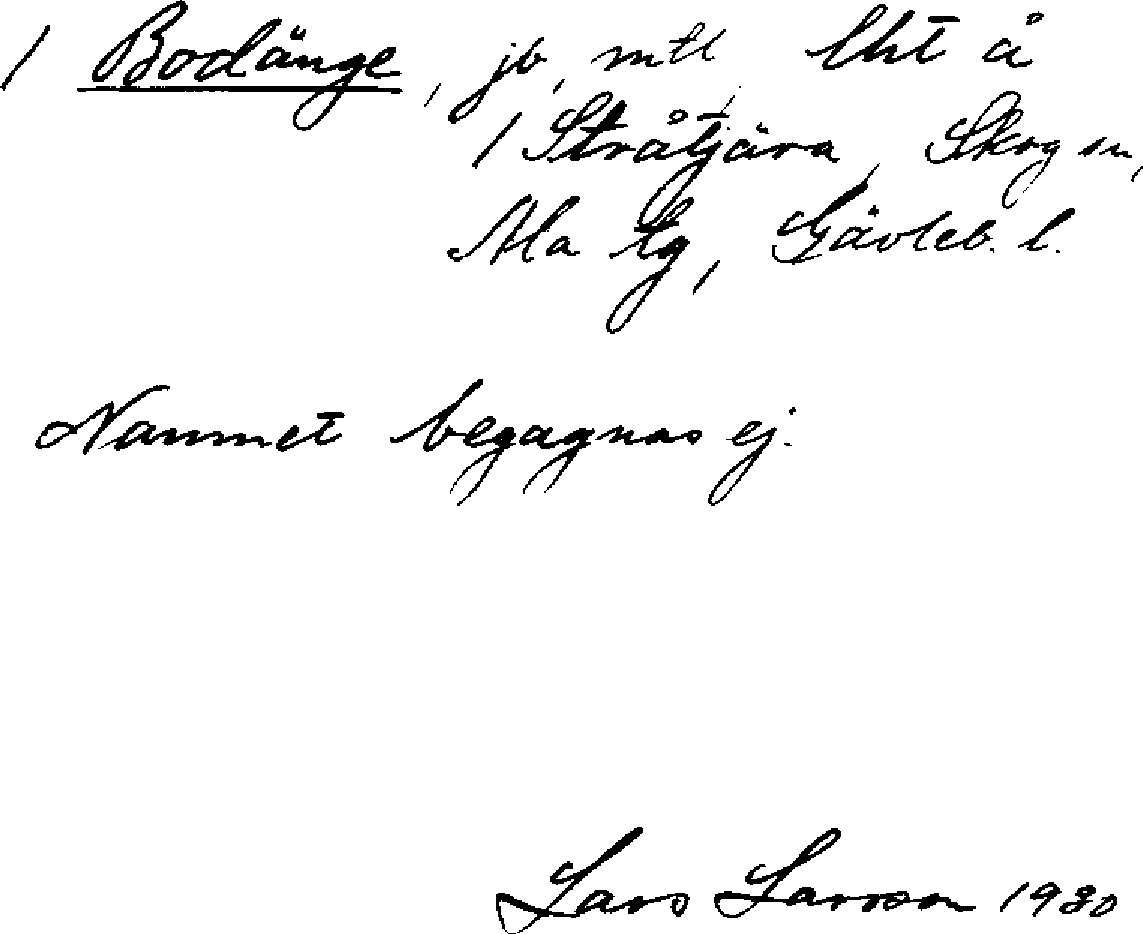 / Bodänge, jb, mtl lht å
/ Stråtjära, Skog sn,
Ala tg, Gävleb. l.
Namnet begagnas ej.
Lars Larson 1930